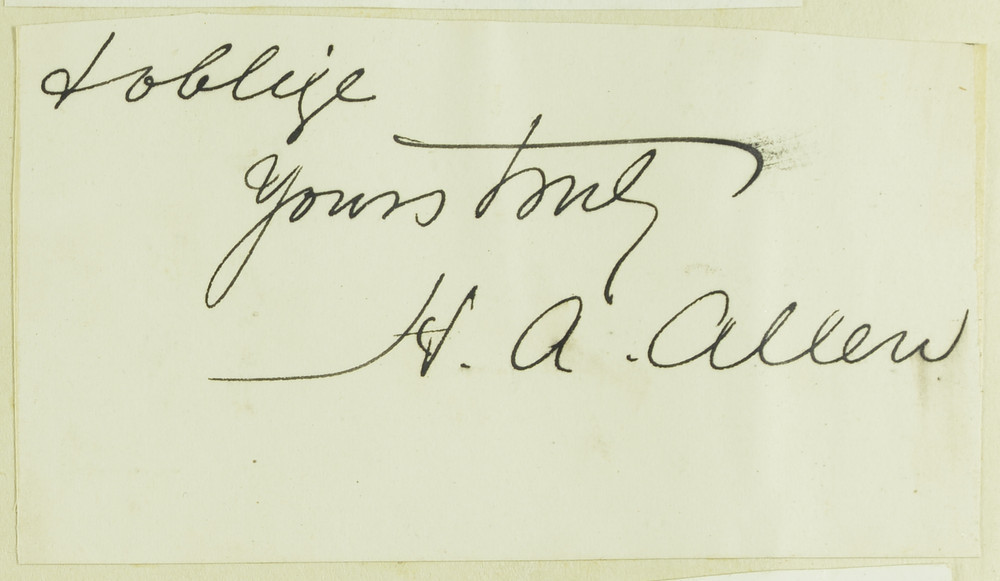 & oblige
Yours truly
H. A. Allen